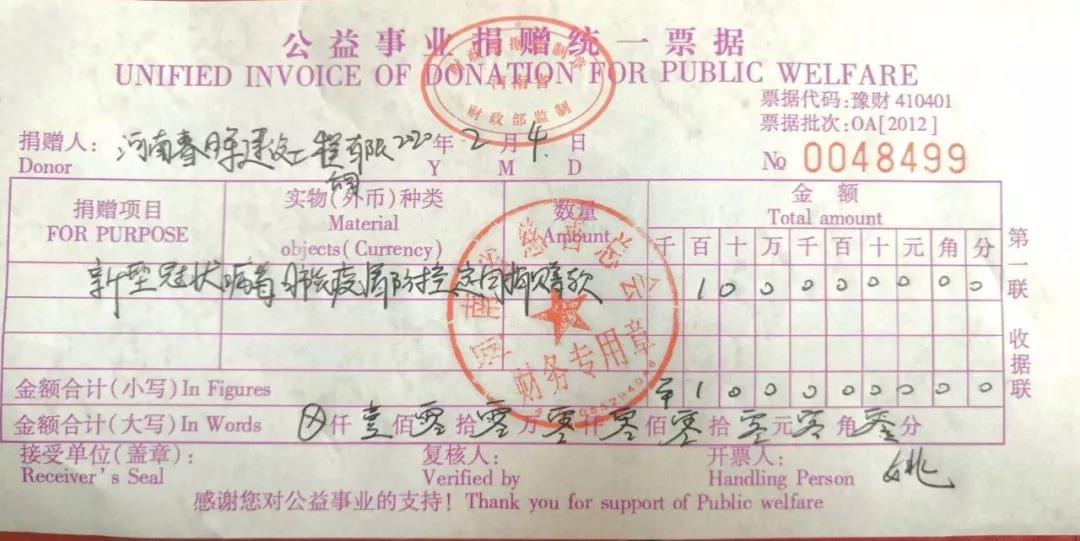 公益事业捐赠统一票据
UNIFIED INVOICE OF DONATION FOR PUBLIC WELFARE
河南省
财政部监制
票据代码:豫财 410401
票据批次:OA[2012]
捐赠人: 河南春晖建设工程有限公司 2020年 2月 4日
Donor Y M D
№ 0048499
捐赠项目 实物(外币)种类 数量 金额
FOR PURPOSE Material objects(Currency) Amount Total amount
千 百 十 万 千 百 十 元 角 分
新型冠状病毒肺炎疫情防控定向捐赠款 1 0 0 0 0 0 0 0 0
河南省慈善总会
财务专用章
金额合计(小写) In Figures ¥ 1 0 0 0 0 0 0 0 0
金额合计(大写) In Words ⊗仟壹佰零拾零万零仟零佰零拾零元零角零分
接受单位(盖章): 复核人: 开票人: 姚
Receiver's Seal Verified by Handling Person
感谢您对公益事业的支持! Thank you for support of Public welfare
第一联 收据联